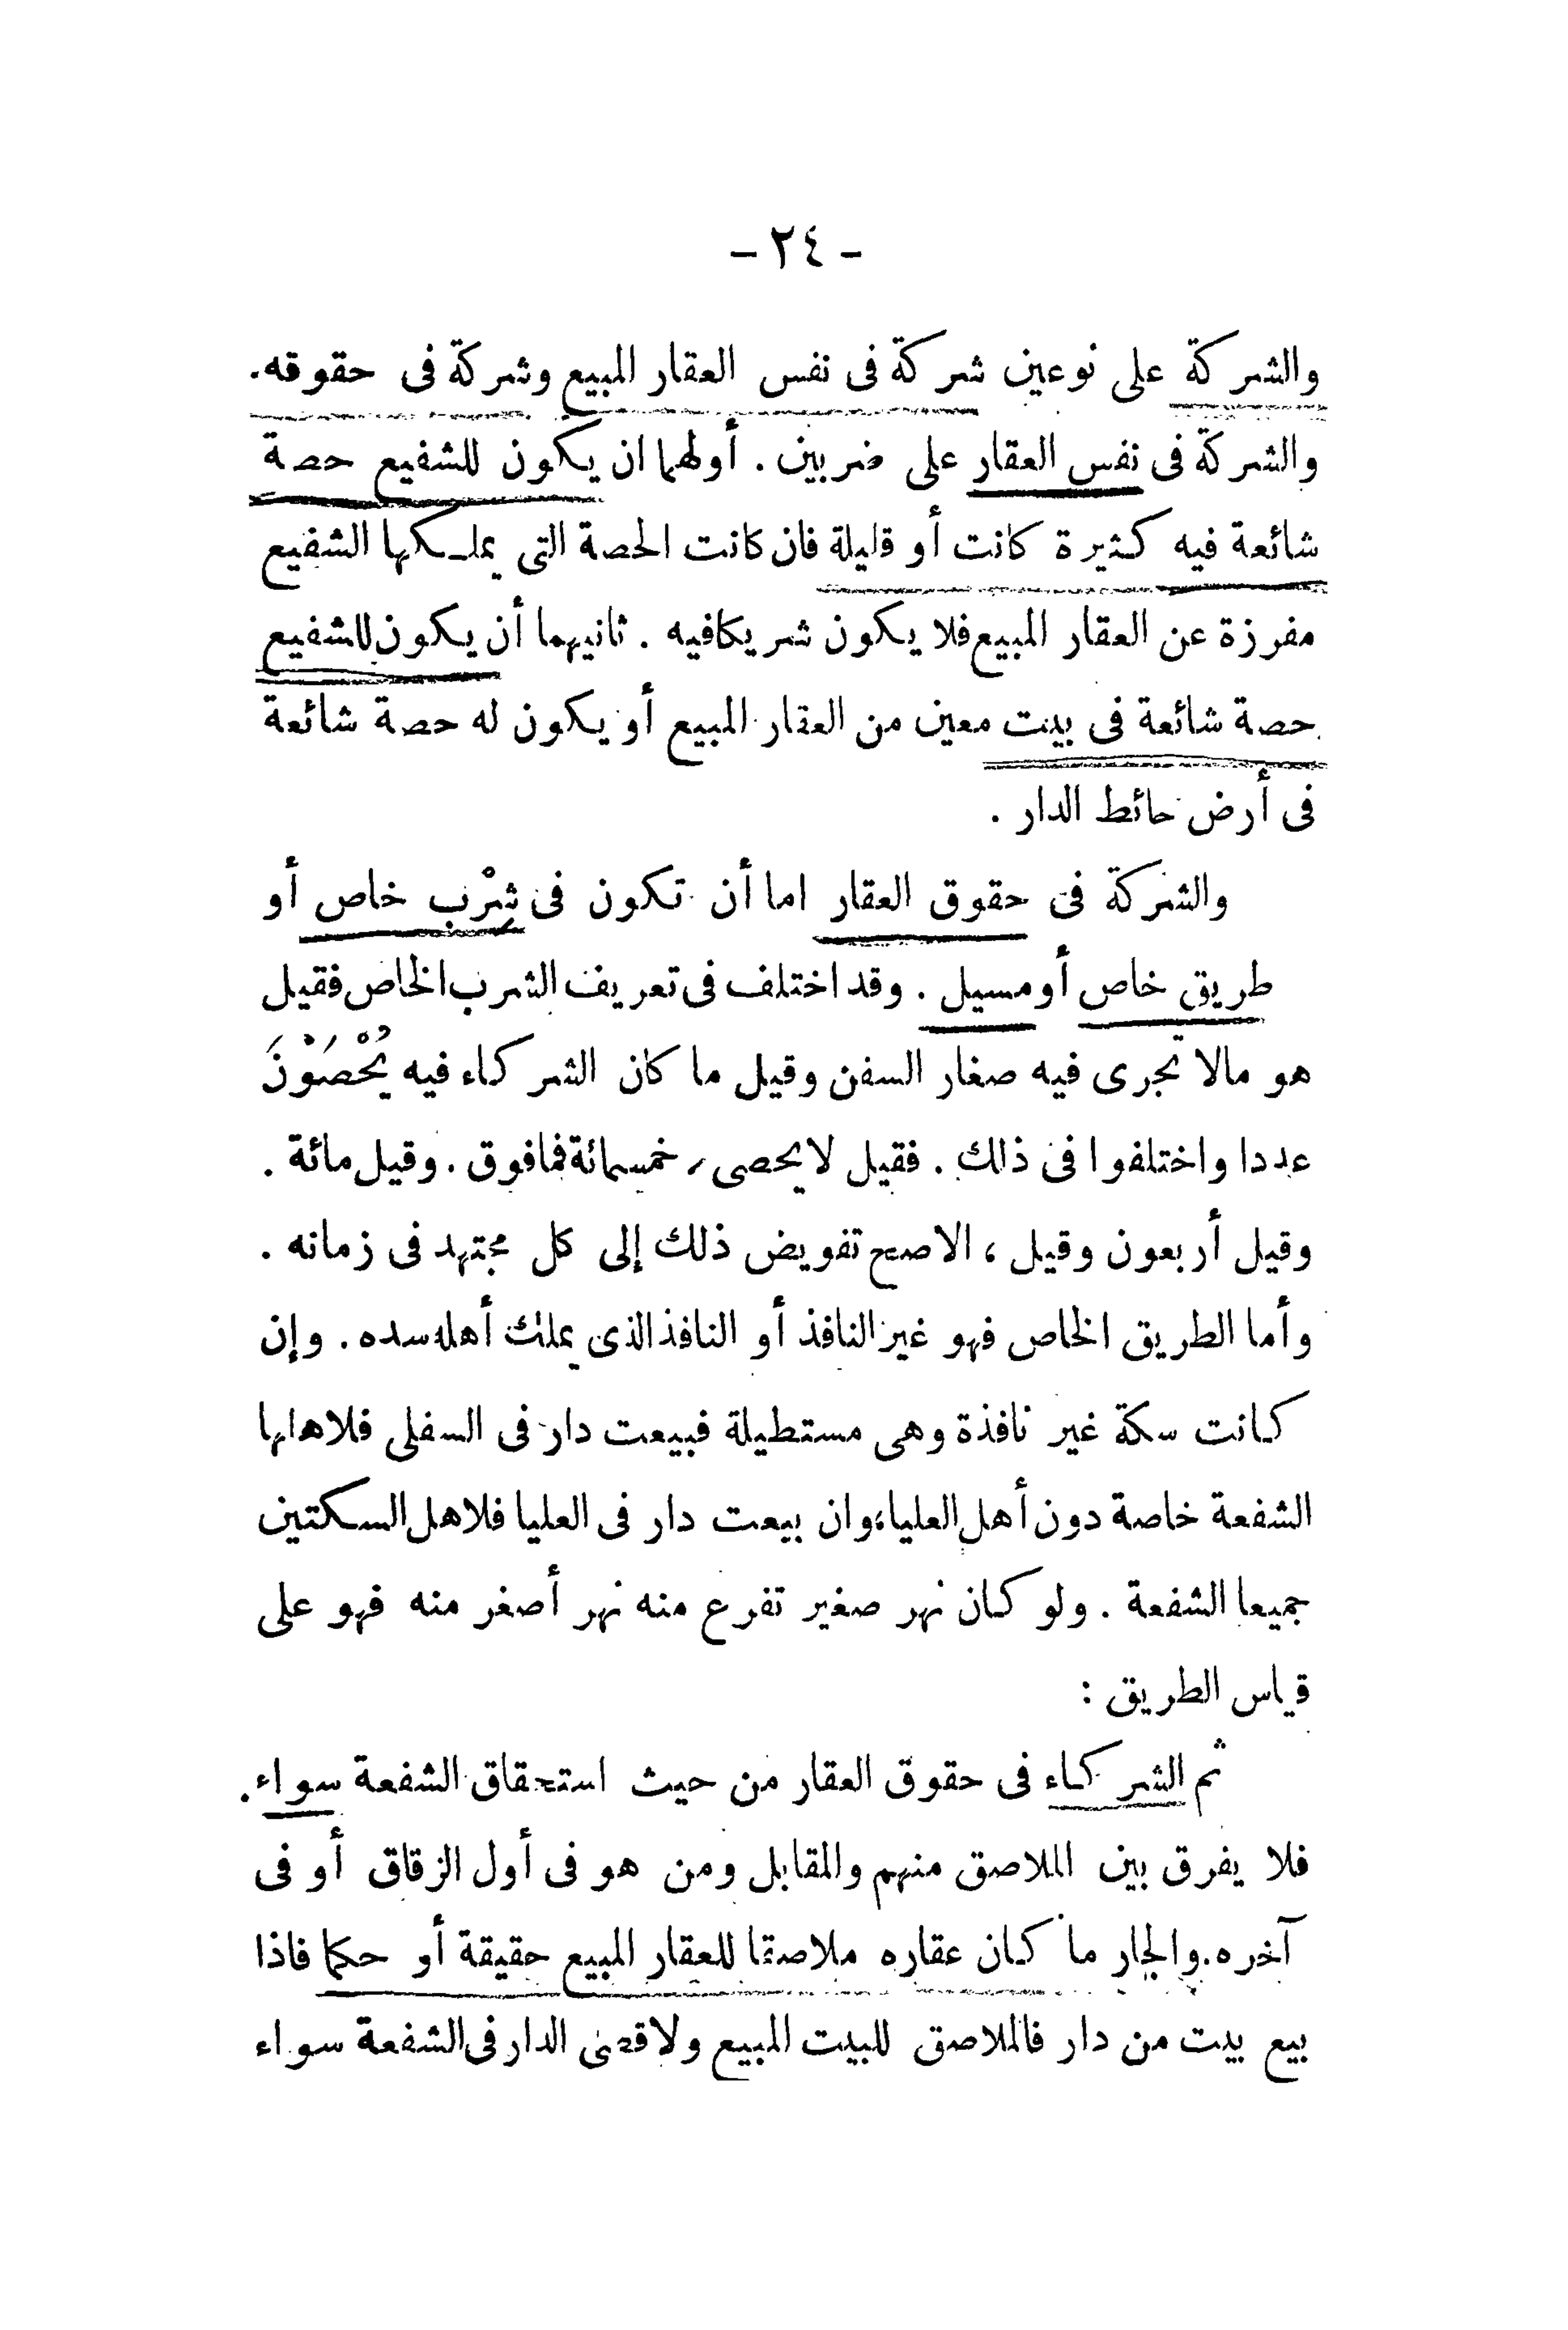 - ٢٤ -
والشركة على نوعين شركة فى نفس العقار المبيع وشركة فى حقوقه.
والشركة فى نفس العقار على ضربين . أولهما ان يكون للشفيع حصة
شائعة فيه كثيرة كانت أو قليلة فان كانت الحصة التى يملكها الشفيع
مفرزة عن العقار المبيع فلا يكون شريكا فيه . ثانيهما أن يكون للشفيع
حصة شائعة فى بيت معين من العقار المبيع أو يكون له حصة شائعة
فى أرض حائط الدار .
والشركة فى حقوق العقار اما أن تكون فى شِرْب خاص أو
طريق خاص أو مسيل . وقد اختلف فى تعريف الشرب الخاص فقيل
هو مالا تجرى فيه صغار السفن وقيل ما كان الشركاء فيه يُحْصَوْنَ
عددا واختلفوا فى ذلك . فقيل لا يحصى خمسمائة فمافوق . وقيل مائة .
وقيل أربعون وقيل ، الاصح تفويض ذلك إلى كل مجتهد فى زمانه .
وأما الطريق الخاص فهو غير النافذ أو النافذ الذى يملك أهله سده . وإن
كانت سكة غير نافذة وهى مستطيلة فبيعت دار فى السفلى فلاهلها
الشفعة خاصة دون أهل العليا، وان بيعت دار فى العليا فلاهل السكتين
جميعا الشفعة . ولو كان نهر صغير تفرع منه نهر أصغر منه فهو على
قياس الطريق :
ثم الشركاء فى حقوق العقار من حيث استحقاق الشفعة سواء .
فلا يفرق بين الملاصق منهم والمقابل ومن هو فى أول الزقاق أو فى
آخره. والجار ما كان عقاره ملاصقا للعقار المبيع حقيقة أو حكما فاذا
بيع بيت من دار فالملاصق للبيت المبيع ولاقصى الدار فى الشفعة سواء